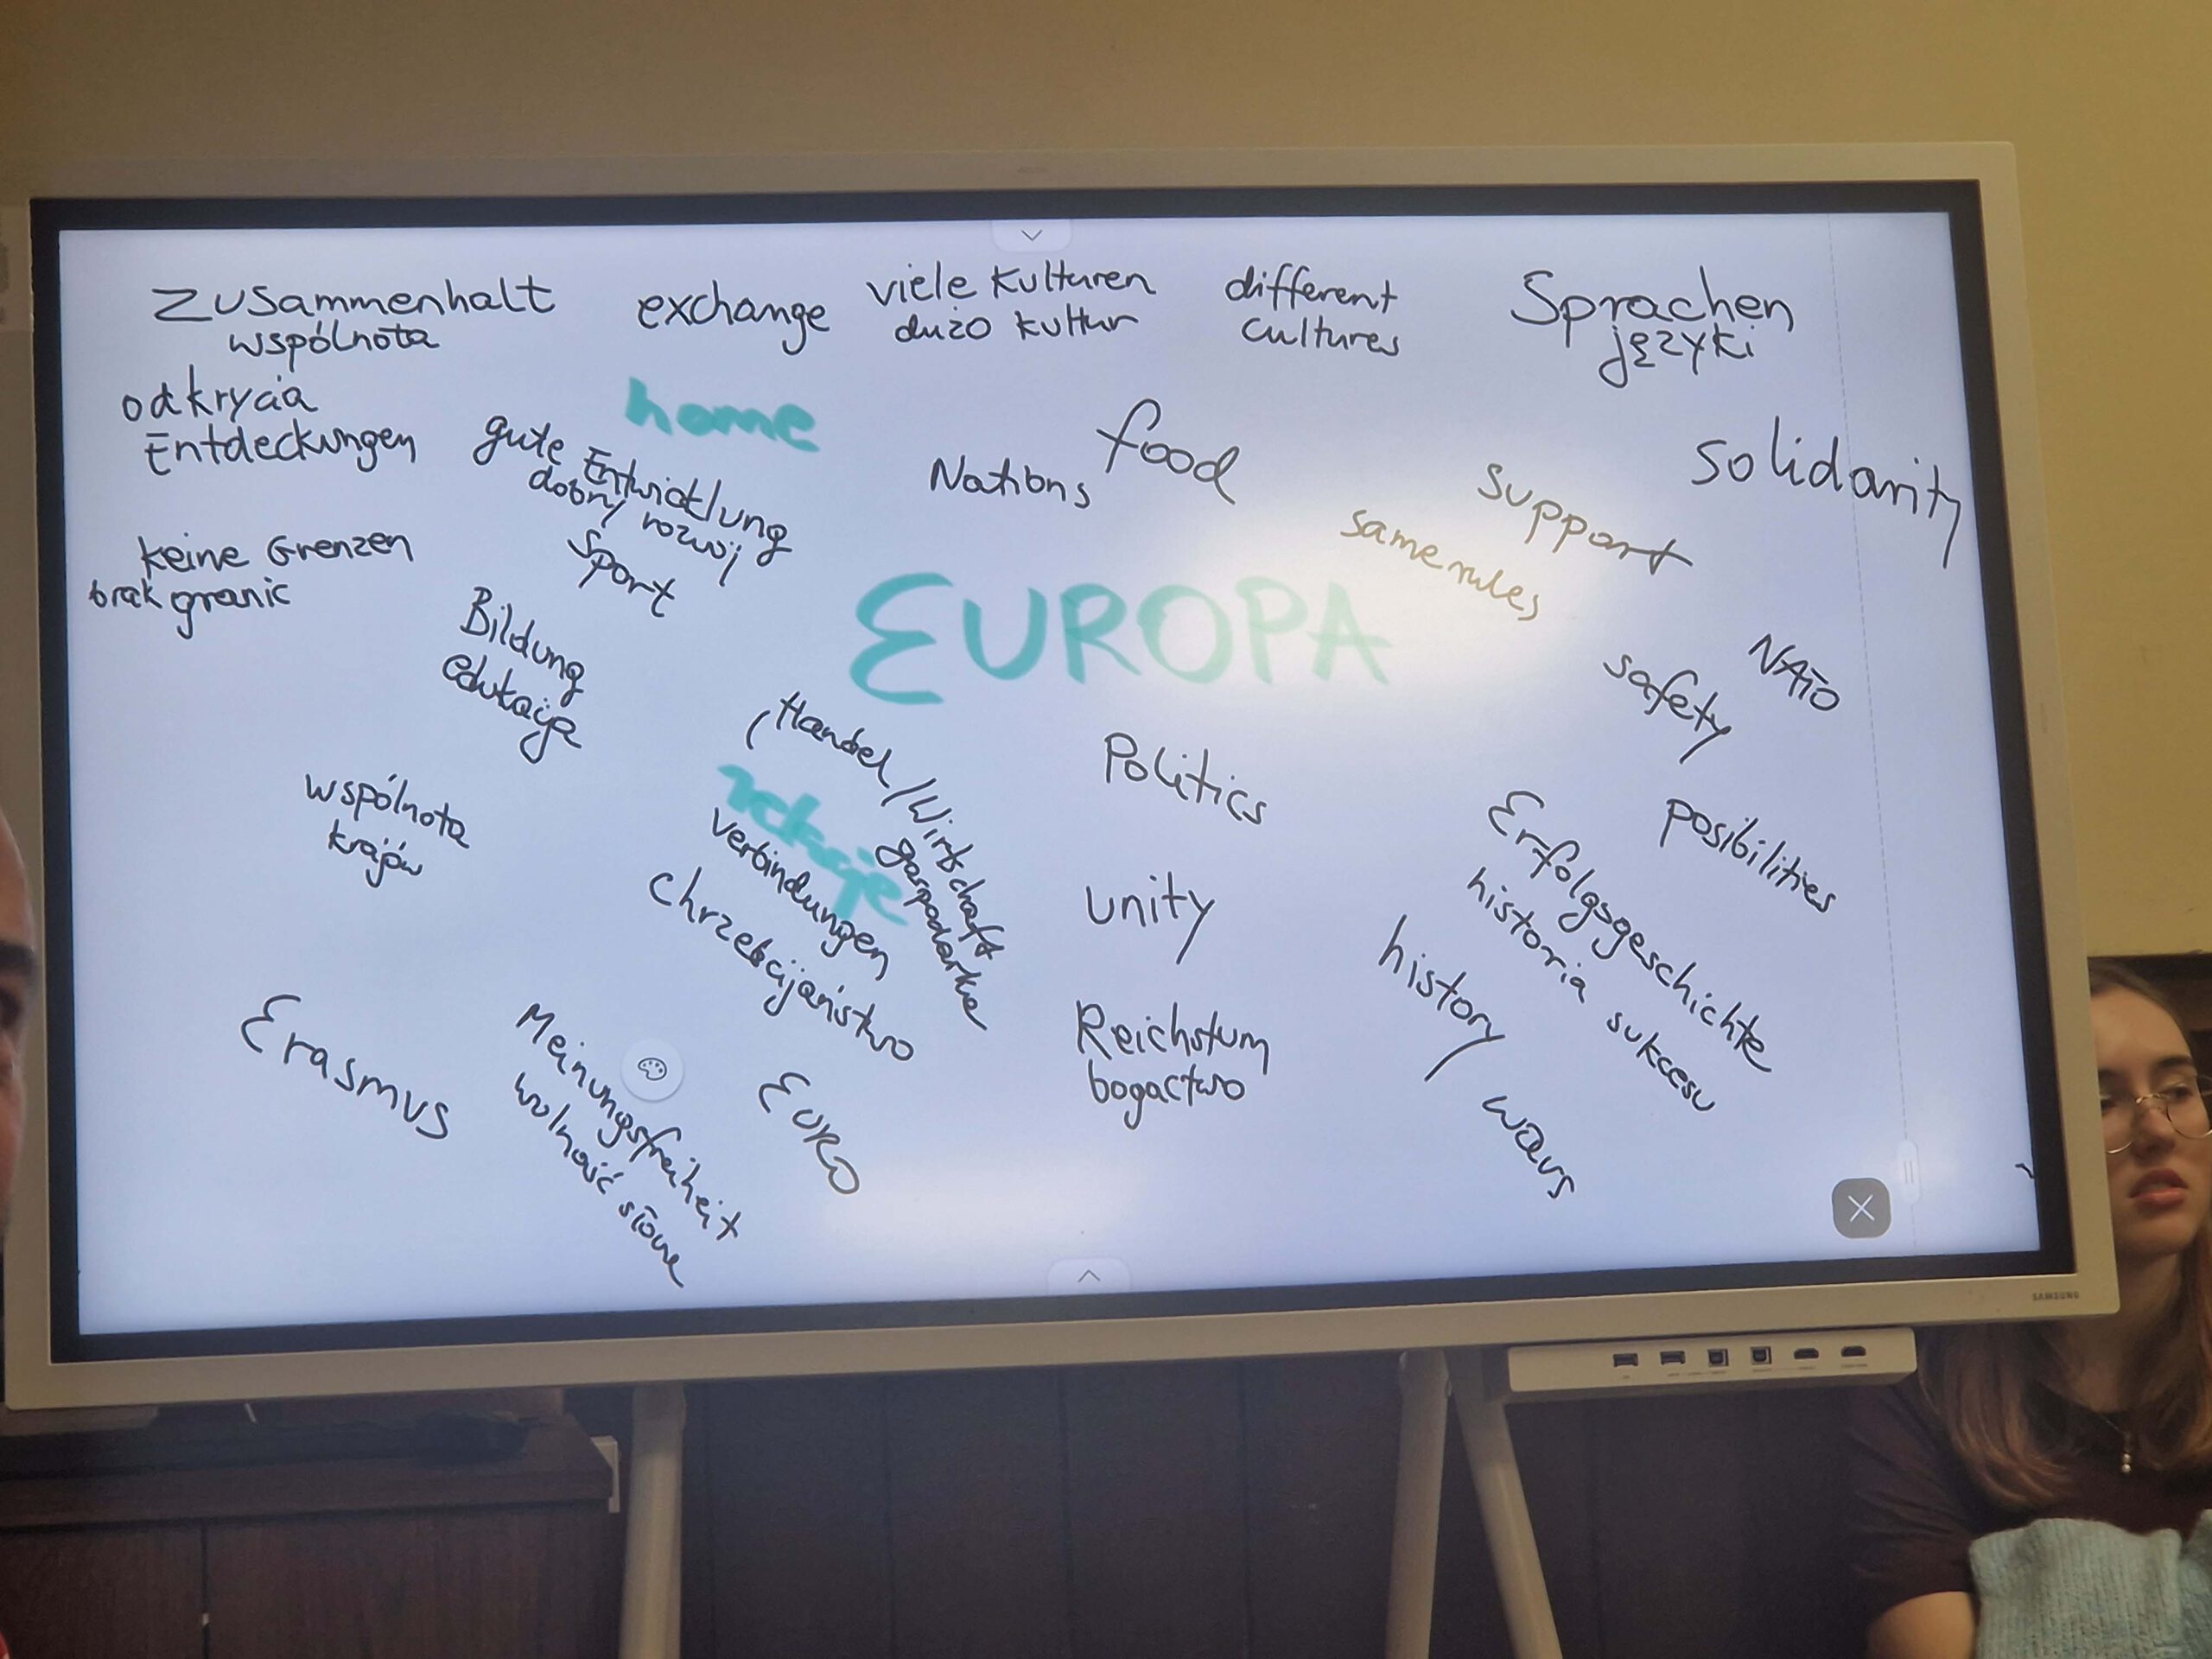 Zusammenhalt
wspólnota
exchange
viele Kulturen
dużo kultur
different
cultures
Sprachen
języki
odkrycia
Entdeckungen
home
gute Entwicklung
dobry rozwój
Sport
Nations
food
support
same rules
solidarity
keine Grenzen
brak granic
Bildung
edukacja
EUROPA
safety
NATO
wspólnota
krajów
Handel/Wirtschaft
gospodarka
Verbindungen
chrześcijaństwo
Politics
unity
Reichstum
bogactwo
Erfolgsgeschichte
historia sukcesu
posibilities
history
wars
Erasmus
Meinungsfreiheit
wolność słowa
EURO
SAMSUNG